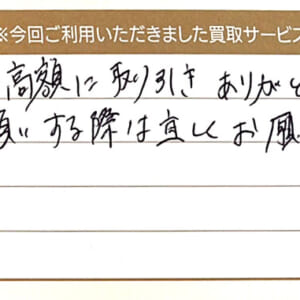 ※今回ご利用いただきました買取サービス
高額に取り引き ありがと
願いする際は宜しくお願